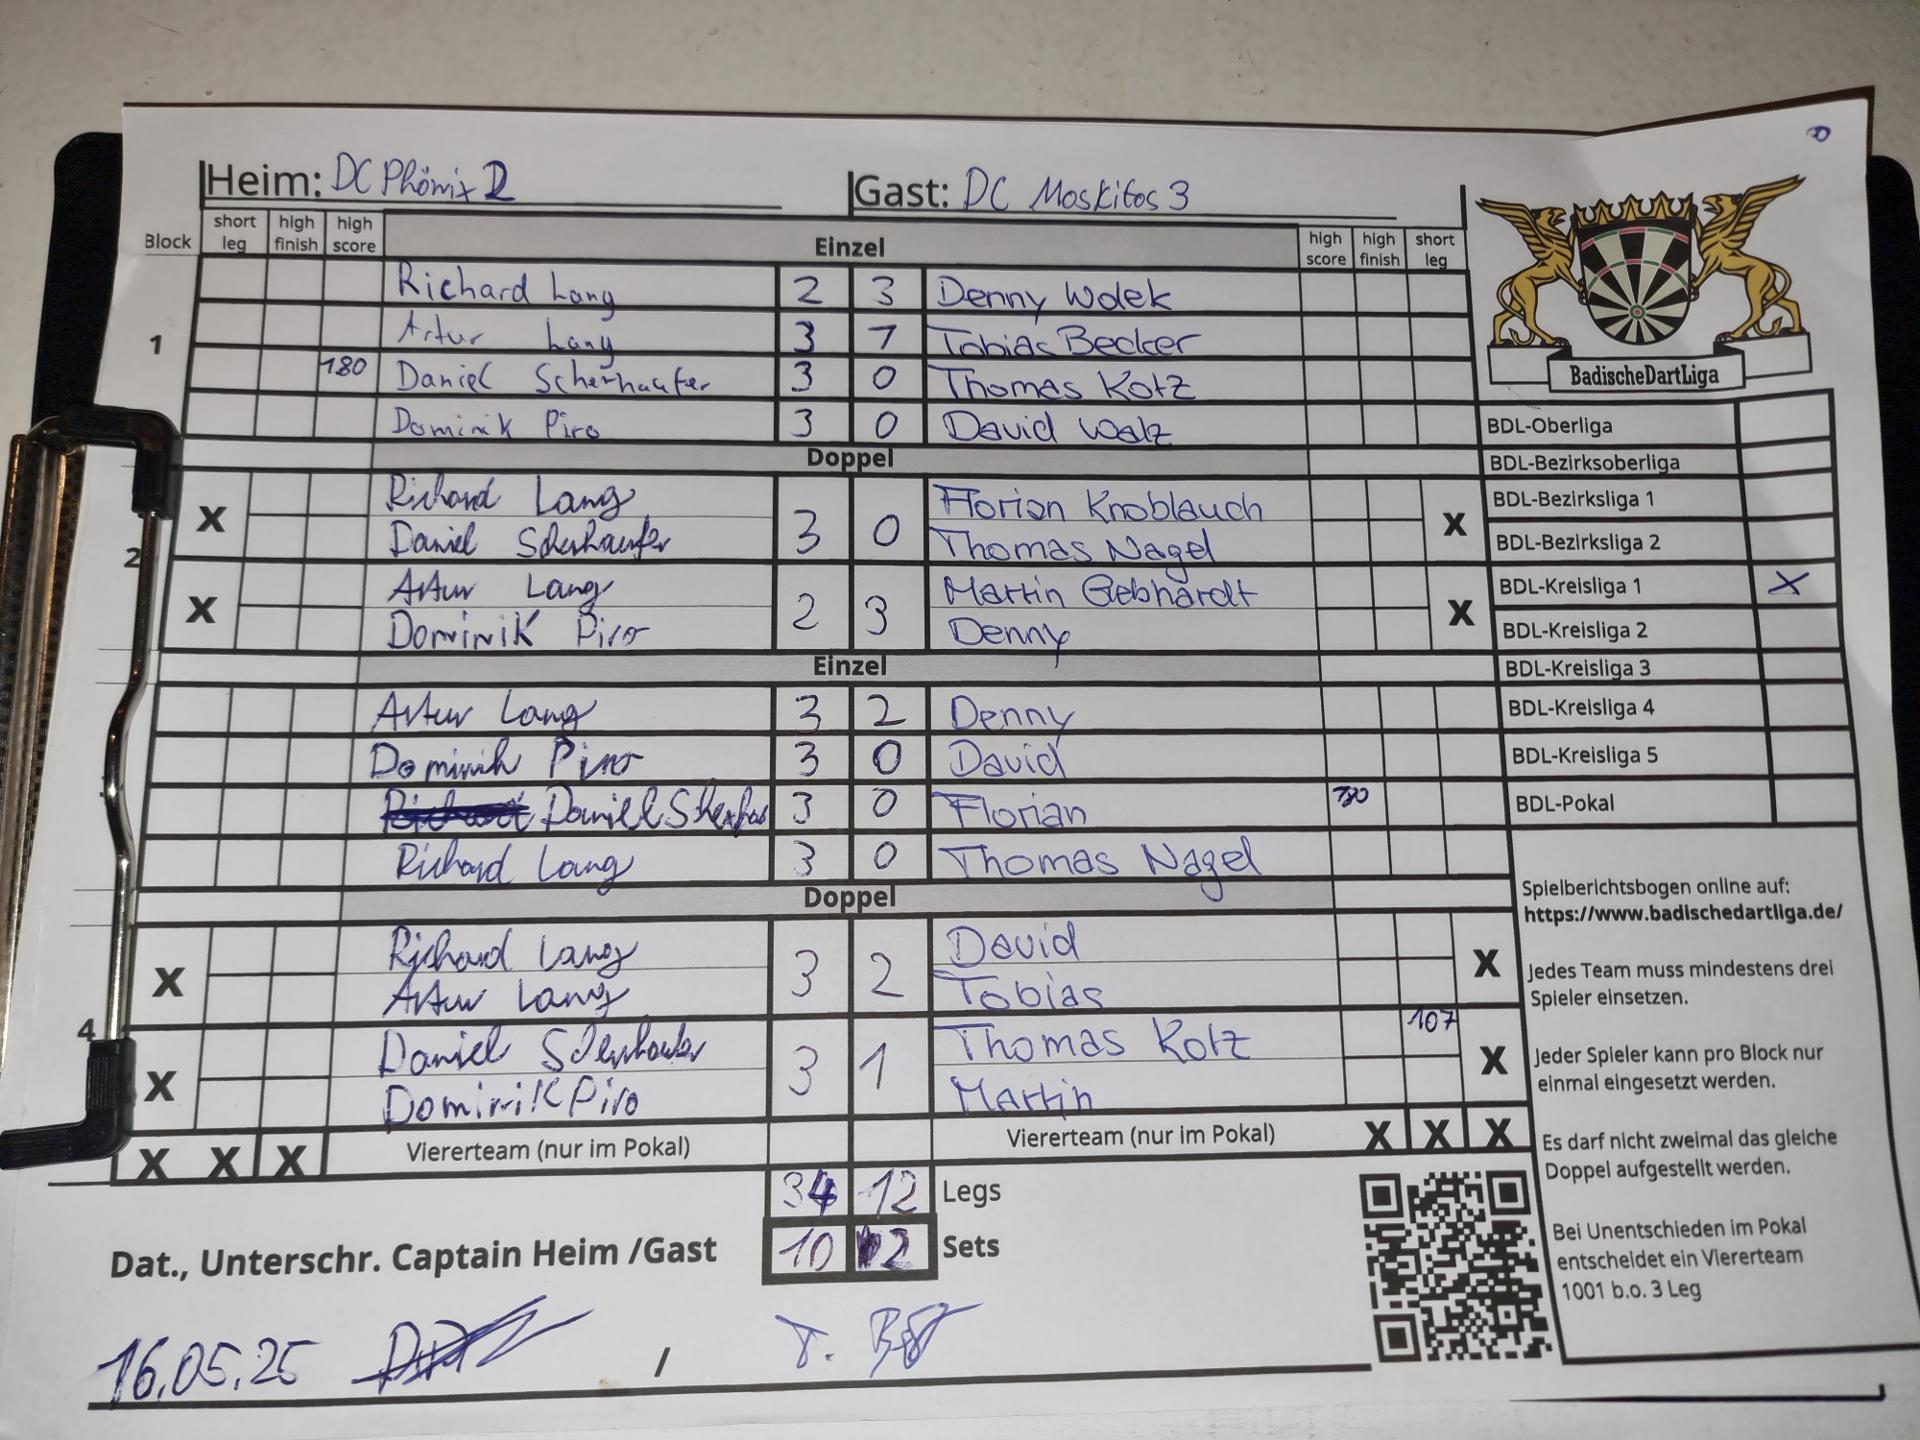 Heim: DC Phönix 2 Gast: DC Moskitos 3
Block short leg high finish high score Einzel high score high finish short leg
Richard Lang 2 3 Denny Wolek
1 Artur Lang 3 1 Tobias Becker
180 Daniel Scherhaufer 3 0 Thomas Kotz
Dominik Piro 3 0 David Walz
Doppel
X Richard Lang 3 0 Florian Knoblauch X
Daniel Scherhaufer Thomas Nagel
2
X Artur Lang 2 3 Martin Gebhardt X
Dominik Piro Denny
Einzel
Artur Lang 3 2 Denny
Dominik Piro 3 0 David
Daniel 3 0 Florian
Richard Lang 3 0 Thomas Nagel
Doppel
X Richard Lang 3 2 David X
Artur Lang Tobias
4
X Daniel Scherhaufer 3 1 Thomas Kotz 107 X
Dominik Piro Martin
X X X Viererteam (nur im Pokal) Viererteam (nur im Pokal) X X X
34 12 Legs
Dat., Unterschr. Captain Heim /Gast 10 2 Sets
16.05.25 / T.
BadischeDartLiga
BDL-Oberliga
BDL-Bezirksoberliga
BDL-Bezirksliga 1
BDL-Bezirksliga 2
BDL-Kreisliga 1 X
BDL-Kreisliga 2
BDL-Kreisliga 3
BDL-Kreisliga 4
BDL-Kreisliga 5
BDL-Pokal
Spielberichtsbogen online auf:
https://www.badischedartliga.de/
Jedes Team muss mindestens drei
Spieler einsetzen.
Jeder Spieler kann pro Block nur
einmal eingesetzt werden.
Es darf nicht zweimal das gleiche
Doppel aufgestellt werden.
Bei Unentschieden im Pokal
entscheidet ein Viererteam
1001 b.o. 3 Leg